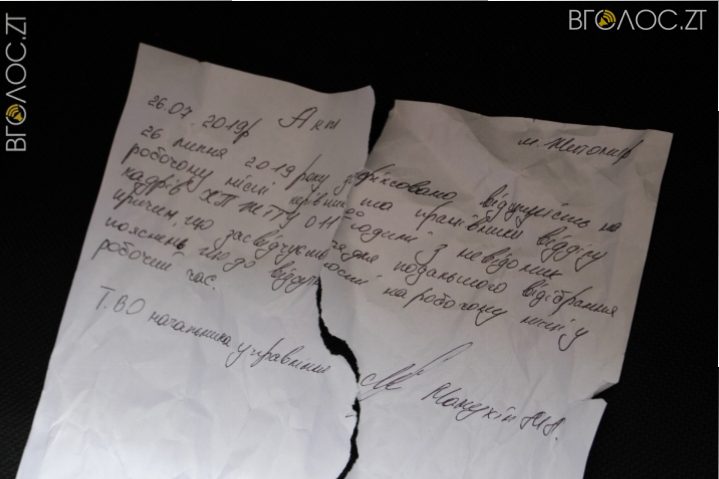 ВГОЛОС.ZT
ВГОЛОС.ZT
26.07 2019р Акт м. Житомир
26 липня 2019 року зафіксовано відсутність на
робочому місці керівника та працівники відділу
кадрів ХП ЖТТУ 011 годині з невідомих
причин, що засвідчується для подальшого відібрання
пояснень щодо відсутності на робочому місці у
робочий час.
Т.ВО начальника управління